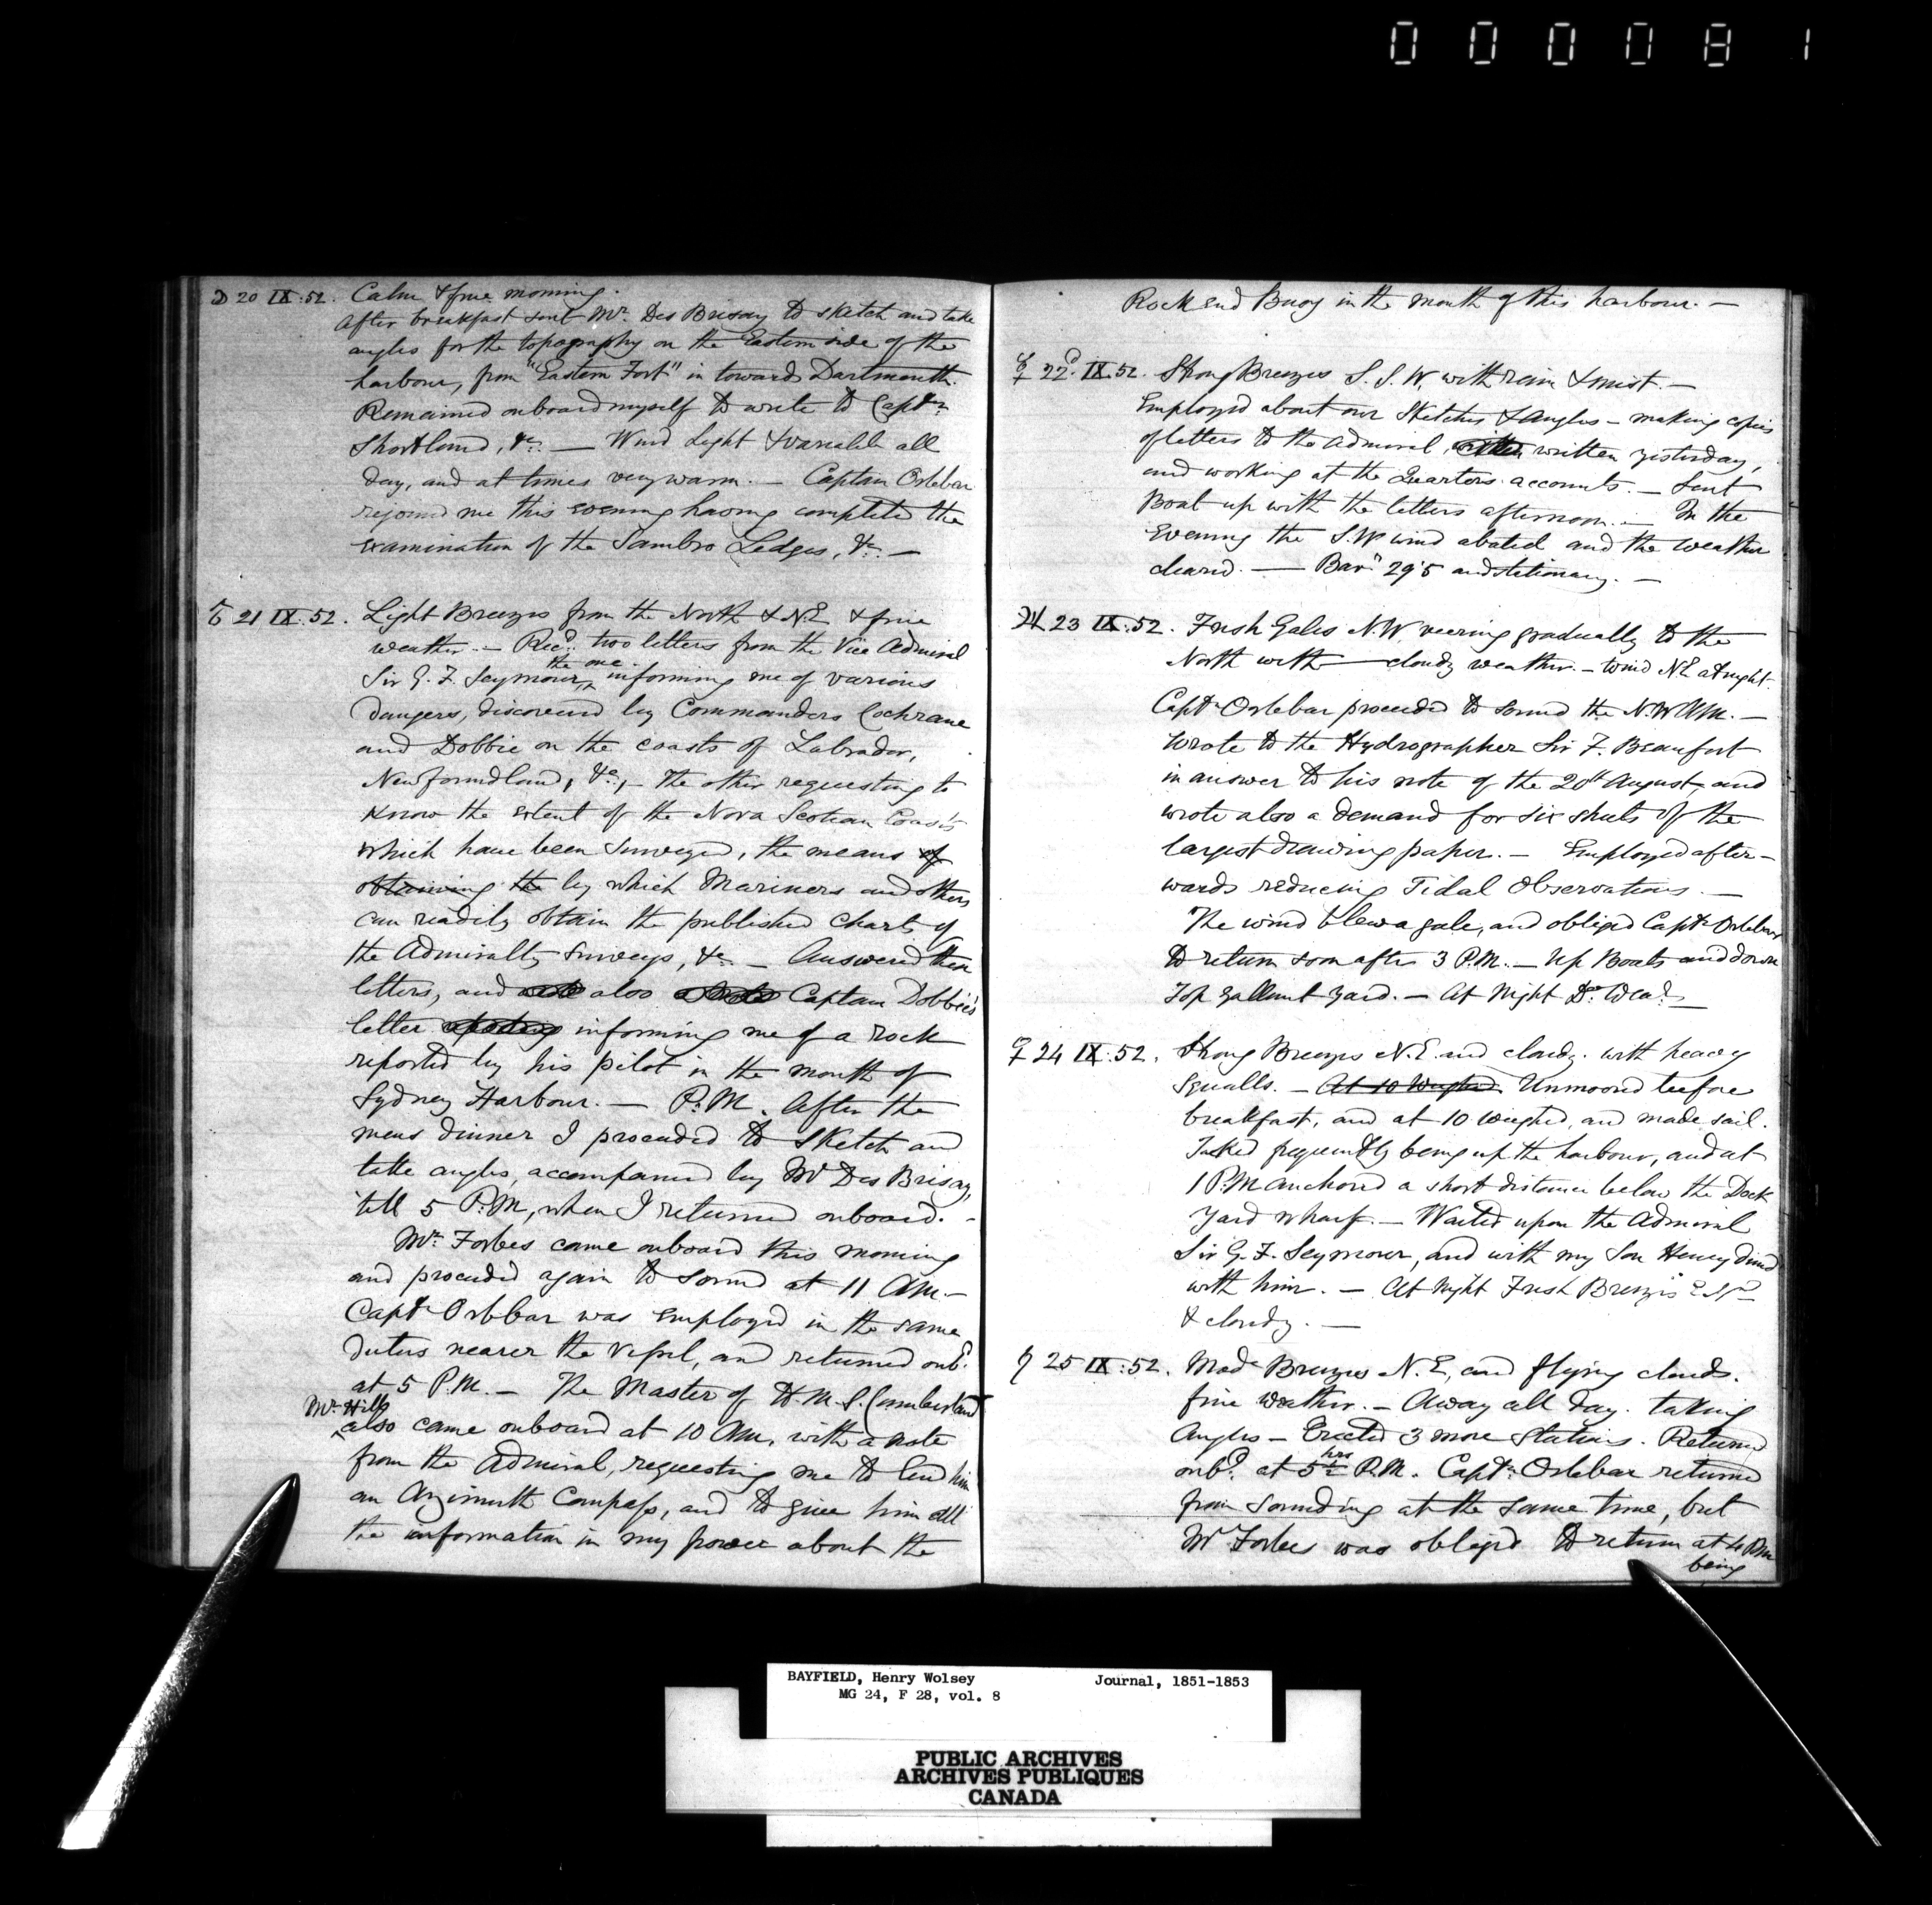 000081
☽ 20 IX:52. Calm & fine morning.
After breakfast sent Mr. Des Brisay to sketch and take
angles for the topography on the Eastern side of the
harbour, from "Eastern Fort" in towards Dartmouth.
Remained onboard myself to write to Captn.
Shortland, &c. — Wind light & variable all
day, and at times very warm. — Captain Orlebar
rejoined me this evening having completed the
examination of the Sambro Ledges, &c. —
♂ 21 IX:52. Light Breezes from the North & N.E & fine
weather. — Recd. two letters from the Vice Admiral
Sir G. F. Seymour, the one informing me of various
dangers, discovered by Commanders Cochrane
and Dobbie on the coasts of Labrador,
Newfoundland, &c, — the other requesting to
know the extent of the Nova Scotian Coasts
which have been Surveyed, the means of
obtaining the by which Mariners and others
can readily obtain the published charts of
the Admiralty Surveys, &c. — Answered these
letters, and also Captain Dobbie's
letter informing me of a rock
reported by his pilot in the mouth of
Sydney Harbour. — P.M. After the
mens dinner I proceeded to sketch and
take angles, accompanied by Mr Des Brisay,
till 5 P.M, when I returned onboard. —
Mr. Forbes came onboard this morning
and proceeded again to sound at 11 AM. —
Captn Orlebar was employed in the same
duties nearer the Vessel, and returned onbd.
at 5 P.M. — The Master of H.M.S. Cumberland
Mr. Hill
also came onboard at 10 AM. with a note
from the Admiral, requesting me to lend him
an Azimuth Compass, and to give him all
the information in my power about the
Rock and Buoy in the mouth of this harbour. —
☿ 22d. IX.52. Strong Breezes S.S.W. with rain & mist. —
Employed about our Sketches & Angles — making copies
of letters to the Admiral, written yesterday,
and working at the Quarters accounts. — Sent
Boat up with the letters afternoon. — In the
Evening the S.W wind abated and the weather
cleared. — Barr. 29.5 and stationary. —
♃ 23 IX:52. Fresh Gales N.W. veering gradually to the
North with cloudy weather. — Wind N.E at night.
Captn Orlebar proceeded to sound the N.W Arm. —
Wrote to the Hydrographer Sir F. Beaufort
in answer to his note of the 20th August, and
wrote also a demand for six sheets of the
largest drawing paper. — Employed after-
wards reducing Tidal Observations. —
The wind blew a gale, and obliged Captn Orlebar
to return soon after 3 P.M. — Up Boats and down
Top Gallant Yard. — At Night Do. Wear. —
♀ 24 IX:52. Strong Breezes N.E. and cloudy. with heavy
Squalls. — At 10 Weighed Unmoored before
breakfast, and at 10 weighed, and made sail.
Tacked frequently being up the harbour, and at
1 P.M anchored a short distance below the Dock
Yard Wharf. — Waited upon the Admiral
Sir G. F. Seymour, and with my Son Henry dined
with him. — At Night Fresh Breezes
& cloudy. —
♄ 25 IX:52. Mode Breezes N.E, and flying clouds.
fine weather. — Away all day. taking
Angles — Erected 3 more Stations. Returned
onbd. at 5 P.M. Captn. Orlebar returned
from sounding at the same time, but
Mr Forbes was obliged to return at 4 PM
being
BAYFIELD, Henry Wolsey Journal, 1851-1853
MG 24, F 28, vol. 8
PUBLIC ARCHIVES
ARCHIVES PUBLIQUES
CANADA